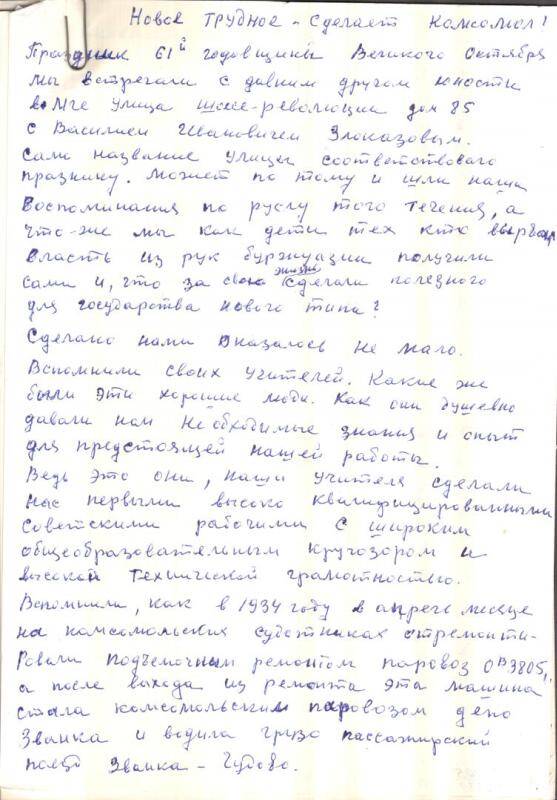 Новое трудное - сделает комсомол!
Праздник 61й годовщины Великого Октября
мы встречали с давним другом юности
во Мге улица шоссе-революции дом 85
с Василием Ивановичем Злоказовым.
Само название улицы соответствовало
празднику. Может по тому и шли наши
воспоминания по руслу того течения, а
что-же мы как дети тех кто вырвал
власть из рук буржуазии получили
сами и, что за свою жизнь сделали полезного
для государства нового типа?
Сделано нами оказалось не мало.
Вспомнили своих учителей. Какие же
были эти хорошие люди. Как они душевно
давали нам необходимые знания и опыт
для предстоящей нашей работы.
Ведь это они, наши учителя сделали
нас первыми высоко квалифицированными
советскими рабочими с широким
общеобразовательным кругозором и
высокой технической грамотностью.
Вспомнили, как в 1934 году в апреле месяце
на комсомольских суботниках отремонти-
ровали подъемочным ремонтом паровоз Ов3805,
а после выхода из ремонта эта машина
стала комсомольским паровозом депо
Званка и водила грузо пассажирский
поезд Званка - Чудово.